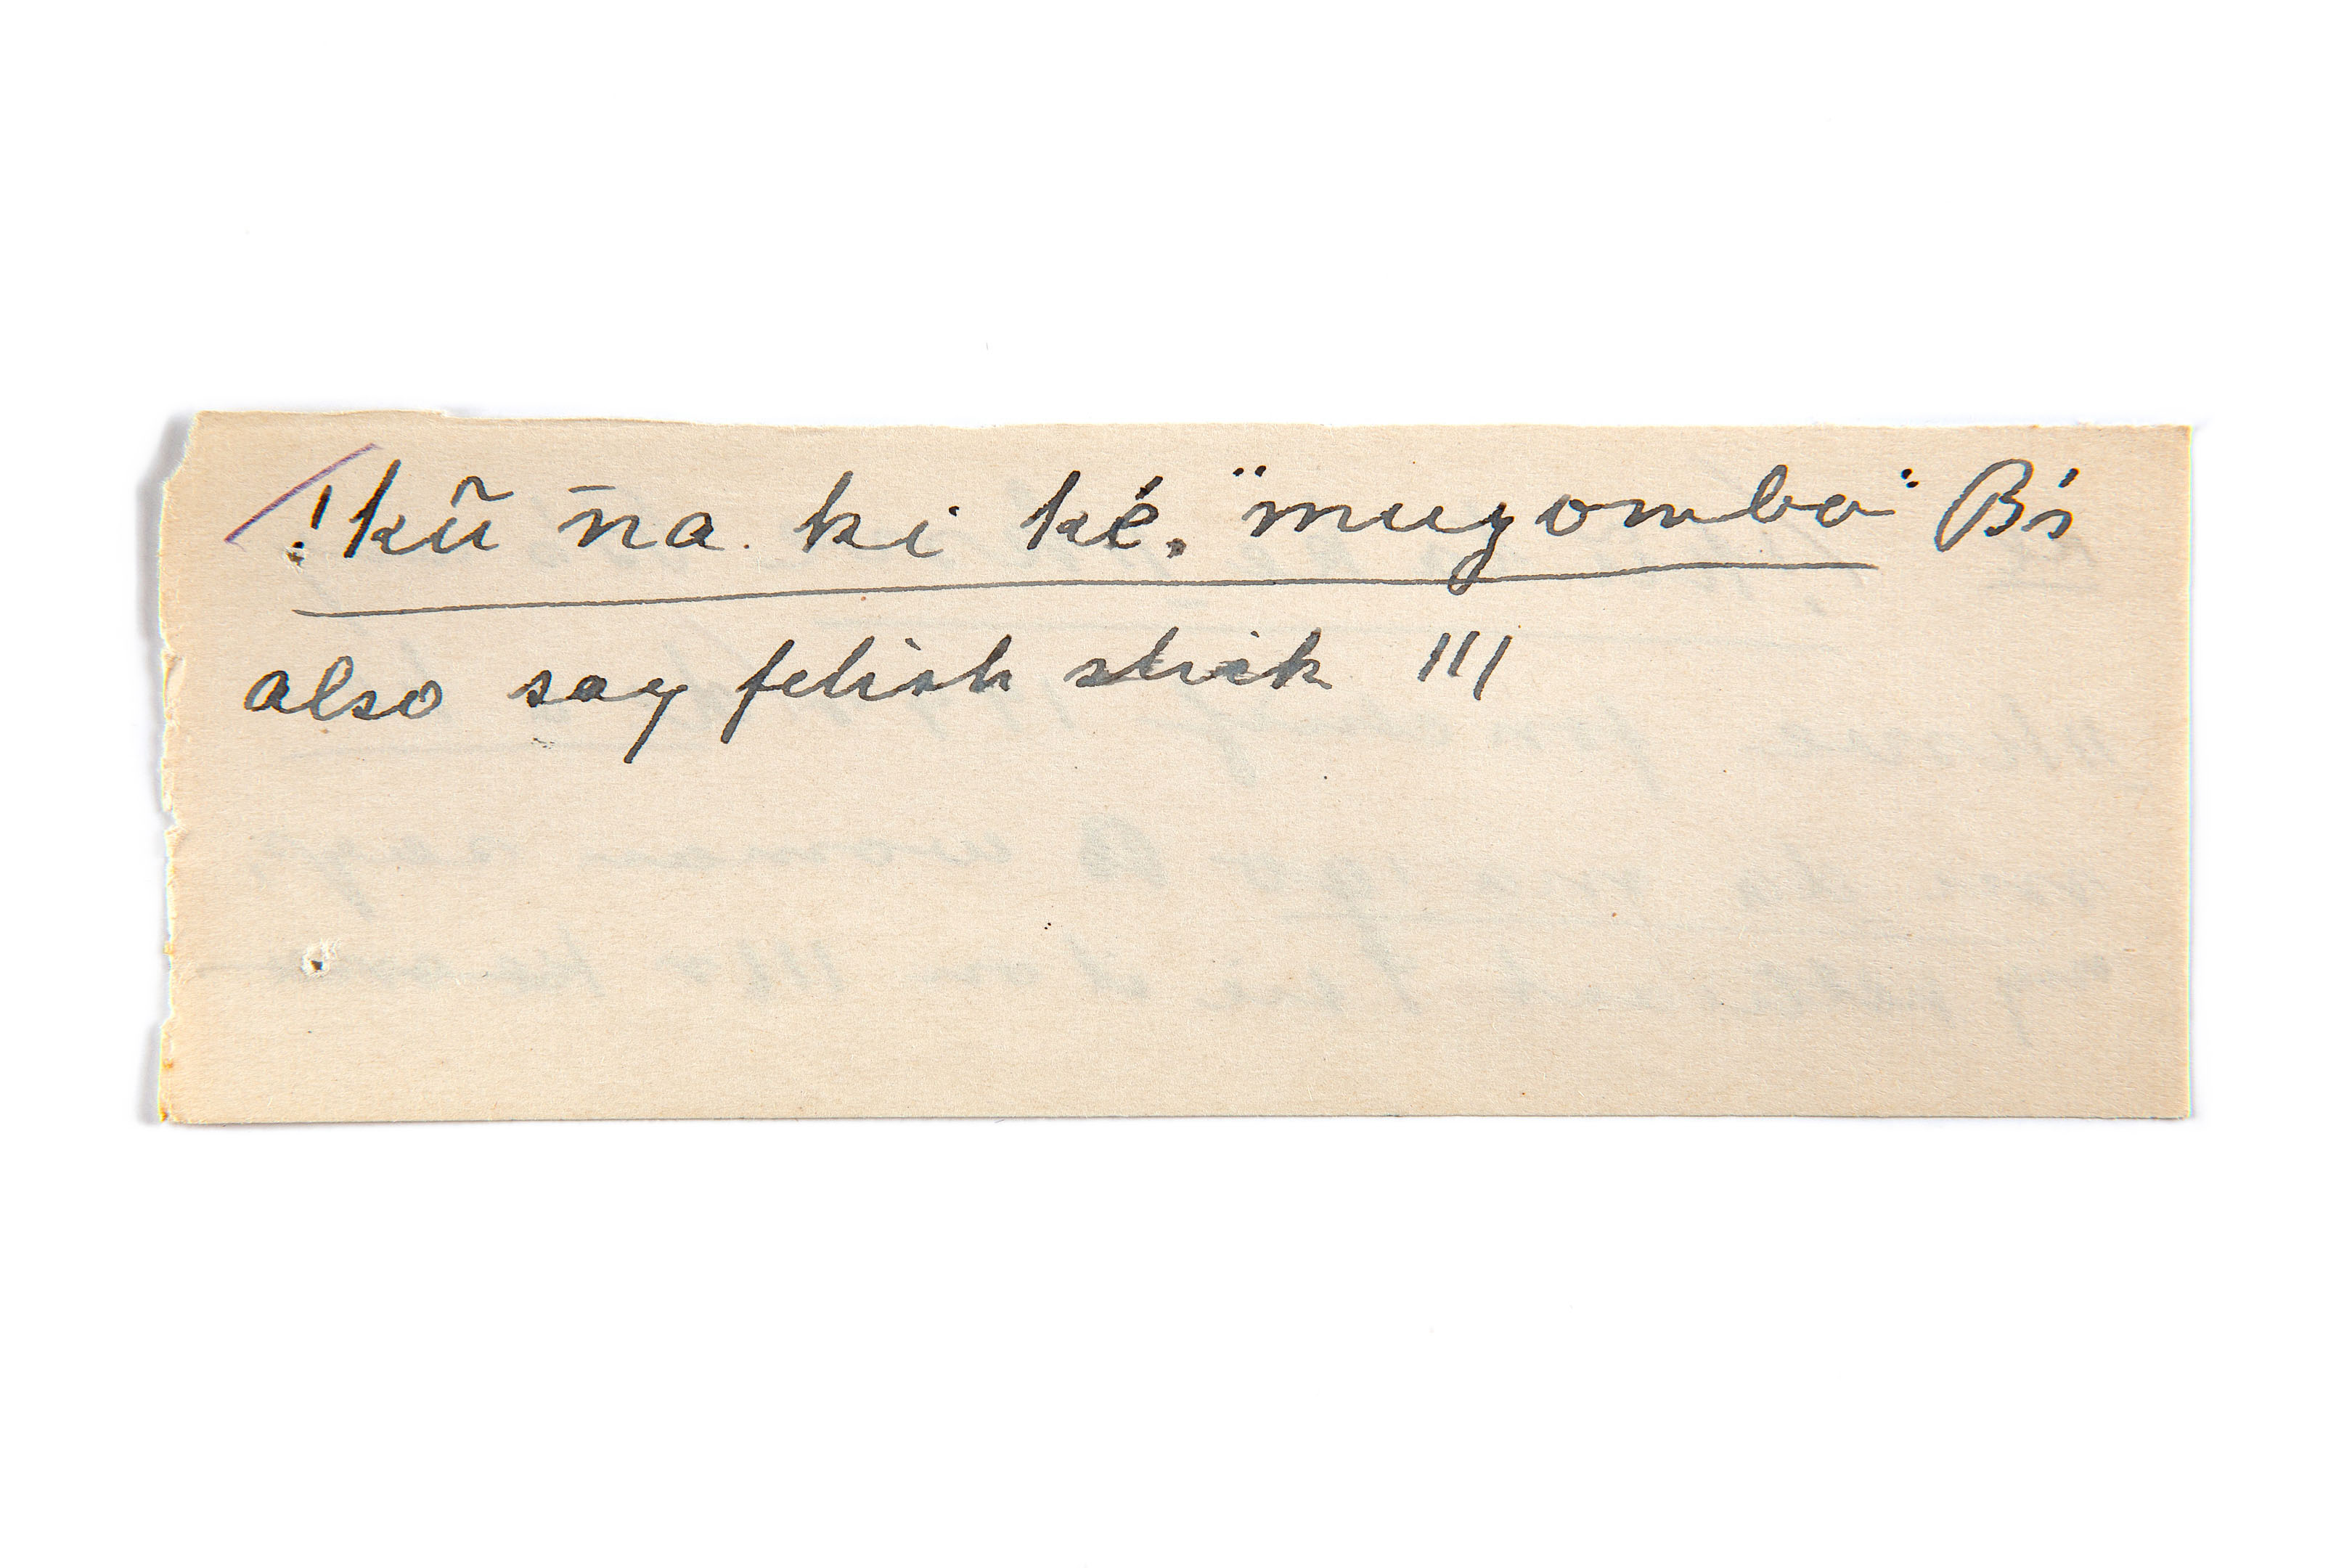 !kũ n̄a ki ké. "muzombo" B's
also say fetish stick |||